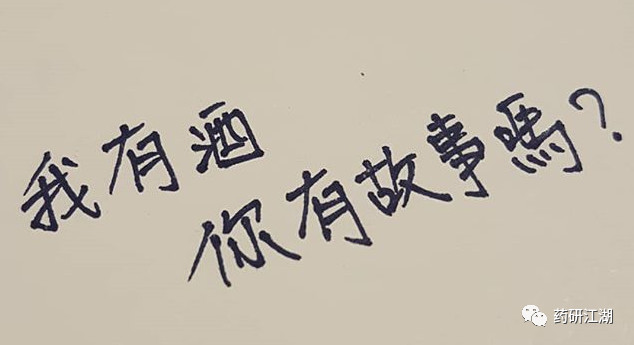 我有酒
你有故事嗎?
药研江湖